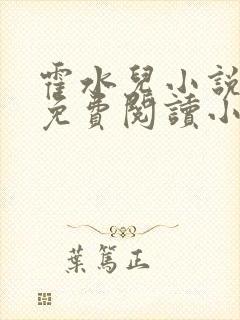 霍水兒小說
免費閱讀小
葉篤正